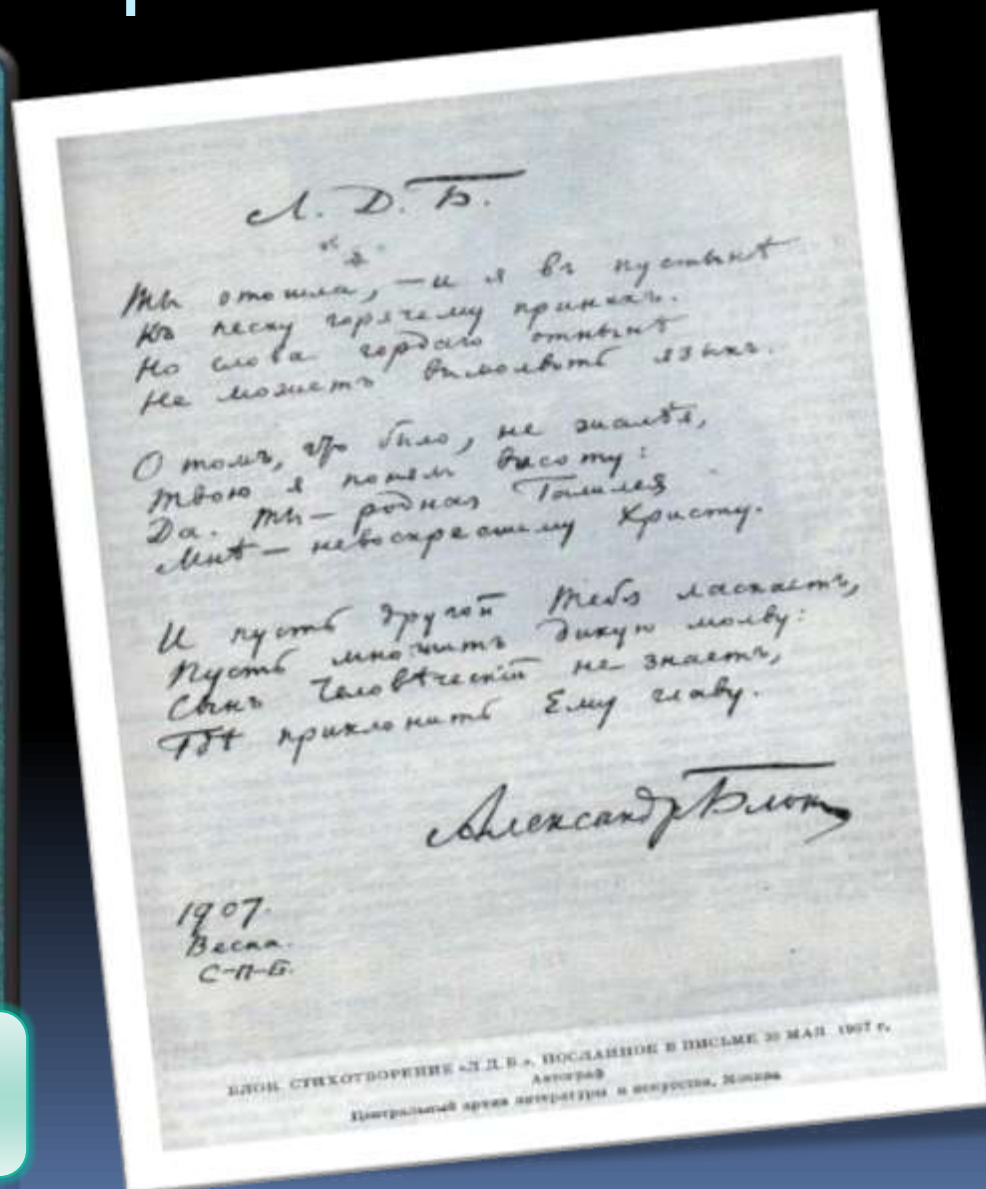 Л. Д. Б.
Ты отошла, — и я въ пустынѣ
Къ песку горячему приникъ.
Но слова гордаго отнынѣ
Не можетъ вымолвить языкъ.
О томъ, что было, не жалѣя,
Твою я понялъ высоту:
Да. Ты — родная Галилея
Мнѣ — невоскресшему Христу.
И пусть другой Тебя ласкаетъ,
Пусть множитъ дикую молву:
Сынъ Человѣческій не знаетъ,
Гдѣ приклонить Ему главу.
Александр Блокъ
1907.
Весна.
С-П-Б.
БЛОК. СТИХОТВОРЕНИЕ «Л. Д. Б.», ПОСЛАННОЕ В ПИСЬМЕ 20 МАЯ 1907 г.
Автограф
Центральный архив литературы и искусства, Москва